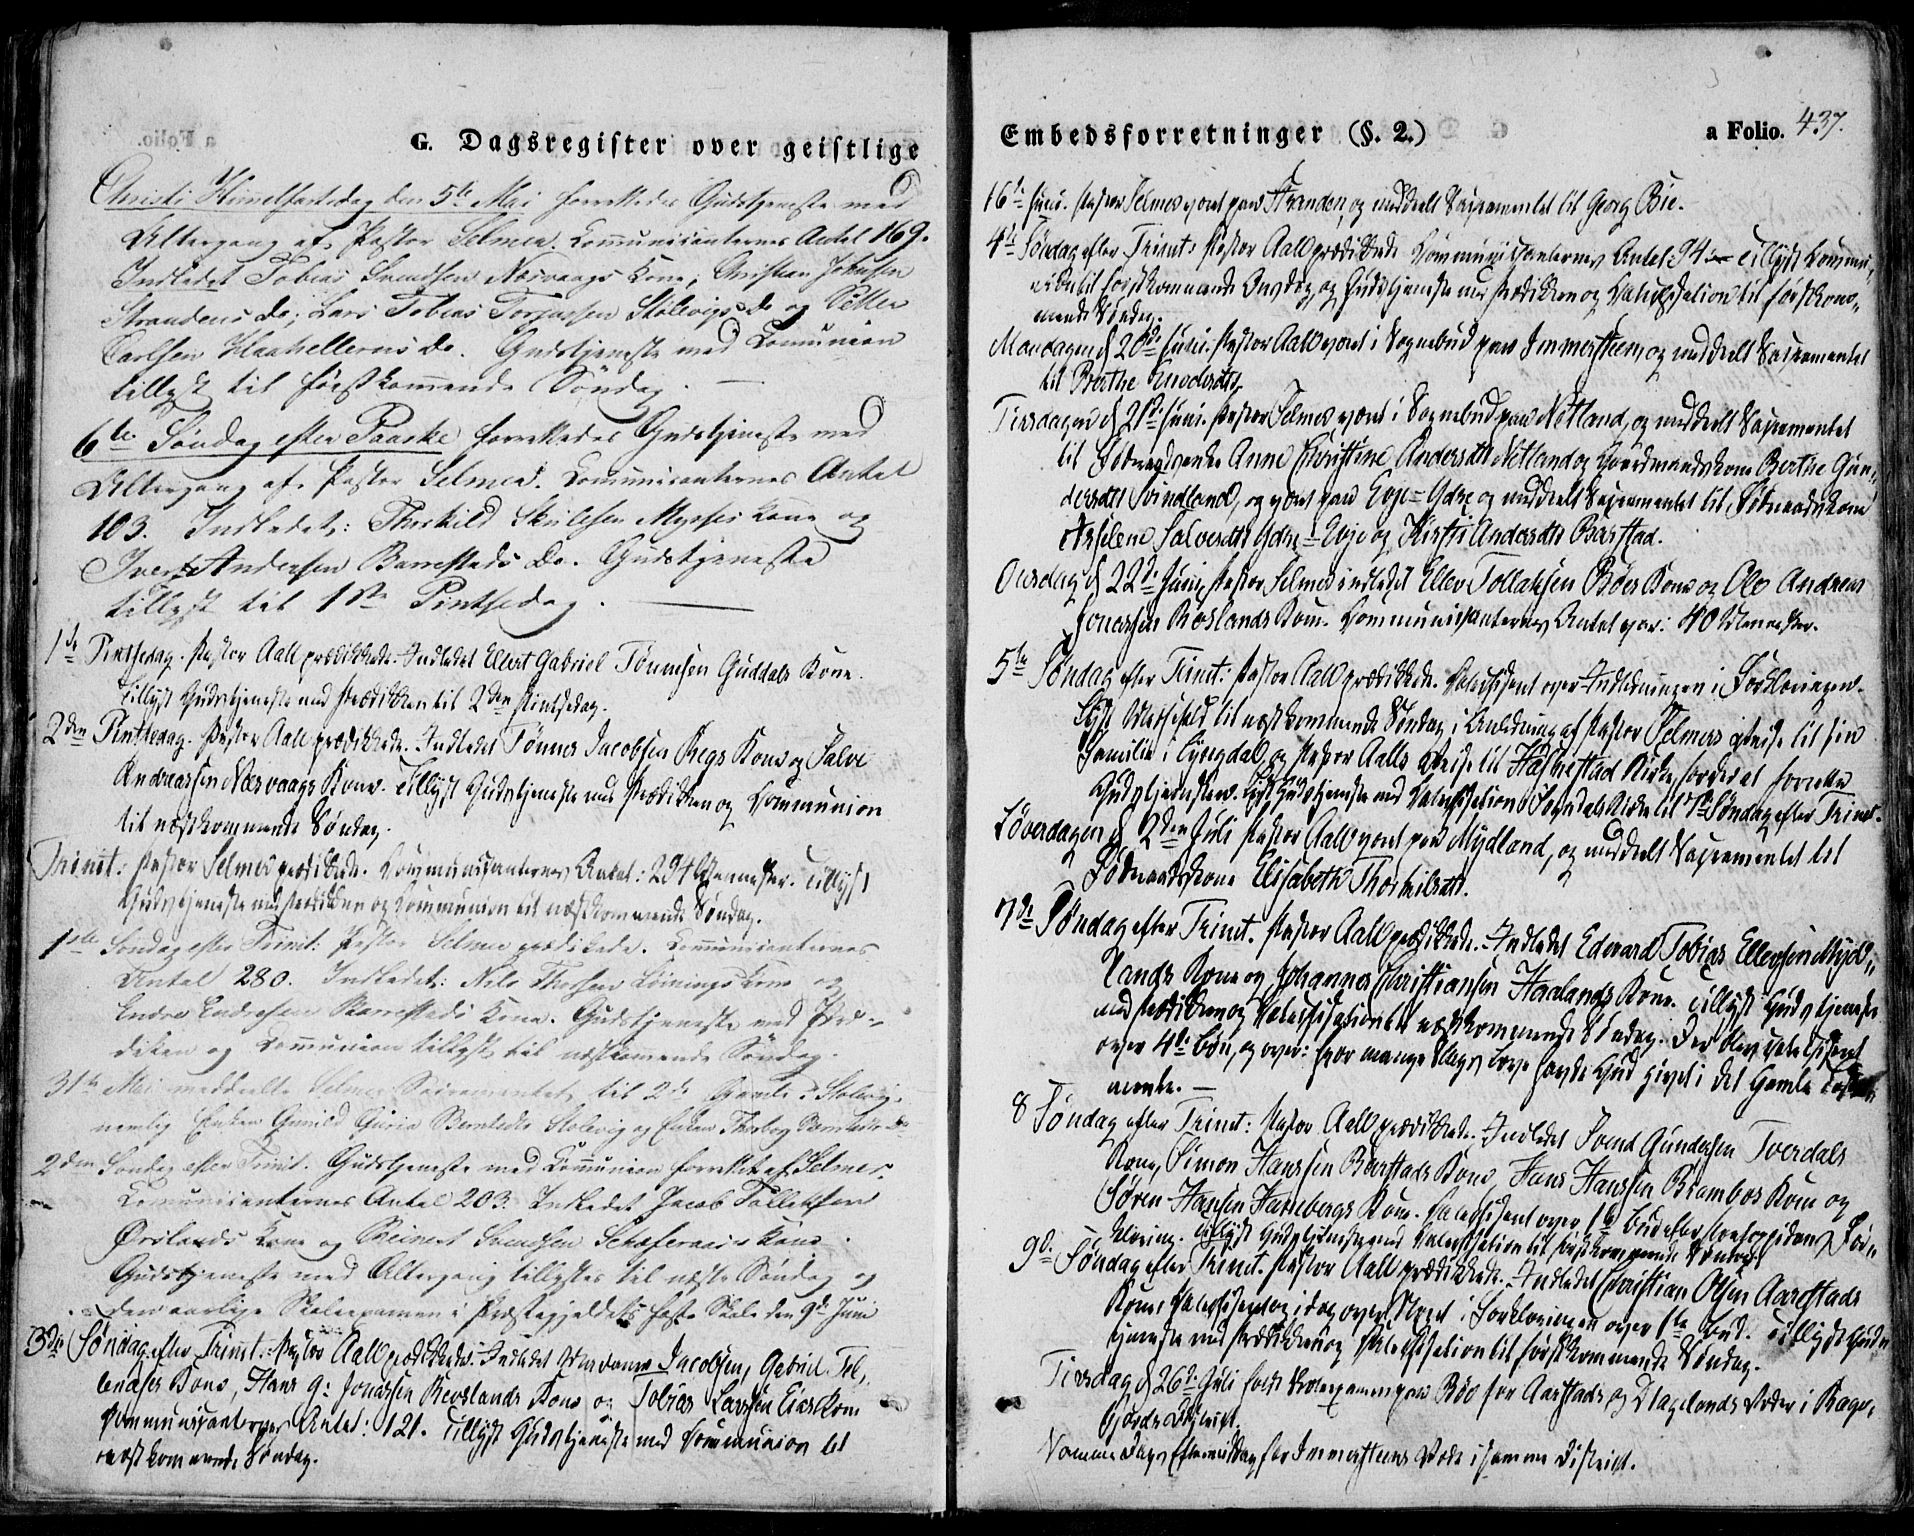 G. Dagsregister over geistlige
Christi Himmelfartsdag den 5te Mai forrettedes Gudstjeneste med
Altergang af Pastor Selmer. Communicanternes Antal 169.
Indledet Tobias Svendsen Næsvaags Kone, Christian Johnsen
Strandens do; Lars Tobias Torjussen Stölevigs do og Petter
Carlsen Haahellerens do. Gudstjeneste med Communion
tillyst til förstkommende Söndag. —
6te Söndag efter Paaske forrettedes Gudstjeneste med
Altergang af Pastor Selmer. Communicanternes Antal
103. Indledet: Thorkild Skulesen Mysses Kone og
Iver Andersen Barrestads do. Gudstjeneste
tillyst til 1ste Pintsedag. —
1ste Pintsedag. Pastor Aall prædikede. Indledet Ellert Gabriel Tönnesen Guddals Kone.
Tillyst Gudstjeneste med Prædiken til 2den Pintsedag.
2den Pintsedag. Pastor Aall prædikede. Indledet Tönnes Jacobsen Regs Kone og Salve
Andreassen Næsvaags Kone. Tillyst Gudstjeneste med Prædiken og Communion
til næstkommende Söndag.
Trinit: Pastor Selmer prædikede. Communicanternes Antal: 294 Mennesker. Tillyst
Gudstjeneste med Prædiken og Communion til næstkommende Söndag.
1ste Söndag efter Trinit: Pastor Selmer prædikede. Communicanternes
Antal 280. Indledet: Nils Thorsen Löinings Kone og
Endre Endresen Barrestads Kone. Gudstjeneste med Præ-
diken og Communion tillyst til næstkommende Söndag.
31te Mai meddeelte Selmer Sacramentet til 2de Gamle i Stolevig,
nemlig Enken Gunild Guria Berntsdtr Stolevig og Enken Thorborg do
2den Söndag efter Trinit. Gudstjeneste med Communion forrettet af Selmer.
Communicanternes Antal 203. Indledet Jacob Tollefsen
Örslands Kone og Reinert Svendsen kone.
Gudstjeneste med Altergang tillystes til næste Söndag og
den aarlige Skoleexamen i Præstegjeldets faste Skole den 9de Juni
3die Söndag efter Trinit: Pastor Aall prædikede. Indledet Jacobsen, Gabriel Tol-
lendses Kone, Hans G: Jonassen Revslands Kone og Tobias Larssen Eies Kone
Communicanternes Antal: 121. Tillyst Gudstjeneste med Communion til
næstkommende Söndag.
Embedsforretninger (§. 2.) a Folio. 437.
16de Juni. Pastor Selmer været paa Stranden, og meddeelt Sacramentet til Georg Bie.
4de Söndag efter Trinit: Pastor Aall prædikede. Communicanternes Antal: 94. Tillyst Commu-
nion til förstkommende Onsdag, og Gudstjeneste med Prædiken og Catechisation til förstkom-
mende Söndag.
Mandagen d 20de Juni. Pastor Aall været i Sognebud paa Immersteen, og meddeelt Sacramentet
til Berthe
Tirsdagen d 21de Juni. Pastor Selmer været i Sognebud paa Netland, og meddeelt Sacramentet
til Föderaadsenke Anne Christine Andersdtr Netland og Gaardmandskone Berthe Gun-
dersdtr Svindland, og været paa Evje-Ydre og meddeelt Sacramentet til Föderaadskone
Aselene Salvesdtr Ydre-Evje og Kirsti Andersdtr Barstad.
Onsdag d 22de Juni, Pastor Selmer indledet Ellev Tollaksen Böes Kone og Ole Andreas
Jonassen Röslands Kone. Communicanternes Antal var: 40 Mennesker.
5te Söndag efter Trinit: Pastor Aall prædikede. Catechiseret over Indledningen i Forklaringen.
Lyst Messefald til næstkommende Söndag i Anledning af Pastor Selmers Reise til sin
Familie i Lyngdal, og Pastor Aalls Reise til Hæskestad Kirke, for der at forrette
Gudstjenesten. Lyst Gudstjeneste med Catechisation i Sogndals Kirke til 7de Söndag efter Trinit.
Löverdagen d 2den Juli Pastor Aall været paa Mydland, og meddeelt Sacramentet til
Föderaadskone Elisabeth Thorkilsdtr.
7de Söndag efter Trinit. Pastor Aall prædikede. Indledet Edevard Tobias Ellevsen Myd-
lands Kone og Johannes Christiansen Haalands Kone. Tillyst Gudstjeneste
med Prædiken og Catechisation til næstkommende Söndag. Der blev catechiseret
over 4de Bön, og over: hvor mange Slags Love havde Gud givet i det Gamle Testa-
mente. —
8 Söndag efter Trinit: Pastor Aall prædikede. Indledet Svend Gundersen Tverdals
Kone, Simon Hanssen Barstads Kone, Hans Hanssen Brambos Kone og
Sören Hansen Hannebergs Kone. Catechiseret over 1ste Bud efter Pontoppidans For-
klaring. Tillyst Gudstjeneste med Catechisation til förstkommende Söndag.
9de Söndag efter Trinit. Pastor Aall prædikede. Indledet Christian Olsen Aarstads
Kone. Catechiseret og i dag over Stykket i Forklaringen over 1ste Bud. Tillyst Guds-
tjeneste med Prædiken og Catechisation til förstkommende Söndag.
Tirsdag d 26de Juli holdt Skoleexamen paa Böe for Aarstads og Dragelands Roder i Rage-
fjords District.
Samme Dags Eftermiddag for Immersteens Rode i samme District.